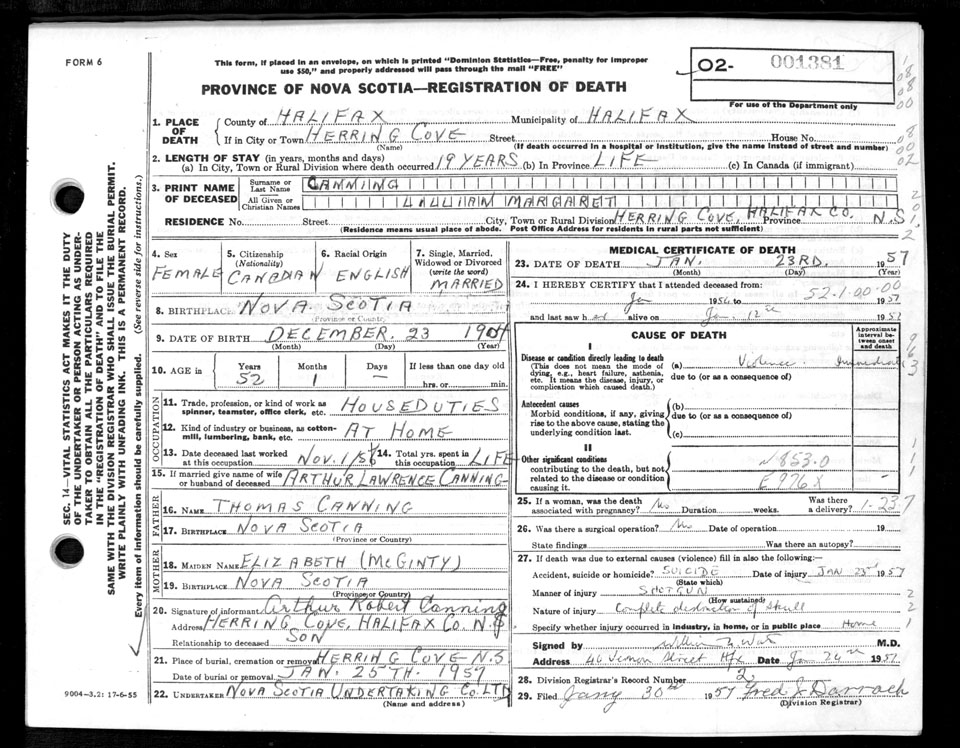 FORM 6
This form, if placed in an envelope, on which is printed "Dominion Statistics—Free, penalty for improper
use $50," and properly addressed will pass through the mail "FREE"
PROVINCE OF NOVA SCOTIA—REGISTRATION OF DEATH
O2- 001381
For use of the Department only
1. PLACE OF DEATH
County of HALIFAX Municipality of HALIFAX
If in City or Town HERRING COVE Street House No.
(Name) (If death occurred in a hospital or institution, give the name instead of street and number)
2. LENGTH OF STAY (in years, months and days)
(a) In City, Town or Rural Division where death occurred 19 YEARS (b) In Province LIFE (c) In Canada (if immigrant)
3. PRINT NAME OF DECEASED
Surname or Last Name CANNING
All Given or Christian Names LILLIAN MARGARET
RESIDENCE No. Street City, Town or Rural Division HERRING COVE, HALIFAX CO. Province N.S.
(Residence means usual place of abode. Post Office Address for residents in rural parts not sufficient)
4. Sex FEMALE
5. Citizenship (Nationality) CANADIAN
6. Racial Origin ENGLISH
7. Single, Married, Widowed or Divorced (write the word) MARRIED
8. BIRTHPLACE NOVA SCOTIA
(Province or Country)
9. DATE OF BIRTH DECEMBER 23 1904
(Month) (Day) (Year)
10. AGE in Years 52 Months 1 Days — If less than one day old
hrs. or min.
OCCUPATION
11. Trade, profession, or kind of work as
spinner, teamster, office clerk, etc. HOUSEDUTIES
12. Kind of industry or business, as cotton-
mill, lumbering, bank, etc. AT HOME
13. Date deceased last worked
at this occupation NOV. 1/56
14. Total yrs. spent in
this occupation LIFE
15. If married give name of wife
or husband of deceased ARTHUR LAWRENCE CANNING
FATHER
16. NAME THOMAS CANNING
17. BIRTHPLACE NOVA SCOTIA
(Province or Country)
MOTHER
18. MAIDEN NAME ELIZABETH (MCGINTY)
19. BIRTHPLACE NOVA SCOTIA
(Province or Country)
20. Signature of informant Arthur Robert Canning
Address HERRING COVE, HALIFAX CO. N.S
Relationship to deceased SON
21. Place of burial, cremation or removal HERRING COVE N.S
Date of burial or removal JAN. 25TH. 1957
22. UNDERTAKER NOVA SCOTIA UNDERTAKING CO. LTD
(Name and address)
9004-3.2: 17-6-55
MEDICAL CERTIFICATE OF DEATH
23. DATE OF DEATH JAN. 23RD. 1957
(Month) (Day) (Year)
24. I HEREBY CERTIFY that I attended deceased from: 52-1-00-00
Jan 1956 to 1957
and last saw her alive on Jan. 12th 1957
CAUSE OF DEATH
Approximate interval between onset and death
I
Disease or condition directly leading to death
(This does not mean the mode of
dying, e.g., heart failure, asthenia,
etc. It means the disease, injury, or
complication which caused death.)
(a) Violence Immediate
due to (or as a consequence of)
Antecedent causes
Morbid conditions, if any, giving
rise to the above cause, stating the
underlying condition last.
(b)
due to (or as a consequence of)
(c)
II
Other significant conditions
contributing to the death, but not
related to the disease or condition
causing it.
N853.0
E976X
25. If a woman, was the death
associated with pregnancy? No Duration weeks. Was there a delivery?
1-23-7
26. Was there a surgical operation? No Date of operation 19
State findings Was there an autopsy?
27. If death was due to external causes (violence) fill in also the following:
Accident, suicide or homicide? SUICIDE Date of injury JAN 23rd 1957
(State which)
Manner of injury SHOTGUN
(How sustained)
Nature of injury Complete destruction of skull
Specify whether injury occurred in industry, in home, or in public place Home
Signed by M.D.
Address Street Hfx Date Jan 1957
28. Division Registrar's Record Number 2
29. Filed Jany 30th 1957 Fred J Darrach
(Division Registrar)
SEC. 14—VITAL STATISTICS ACT MAKES IT THE DUTY
OF THE UNDERTAKER OR PERSON ACTING AS UNDER-
TAKER TO OBTAIN ALL THE PARTICULARS REQUIRED
IN THE "REGISTRATION OF DEATH" AND TO FILE THE
SAME WITH THE DIVISION REGISTRAR WHO SHALL ISSUE THE BURIAL PERMIT.
WRITE PLAINLY WITH UNFADING INK. THIS IS A PERMANENT RECORD.
Every item of information should be carefully supplied. (See reverse side for instructions.)